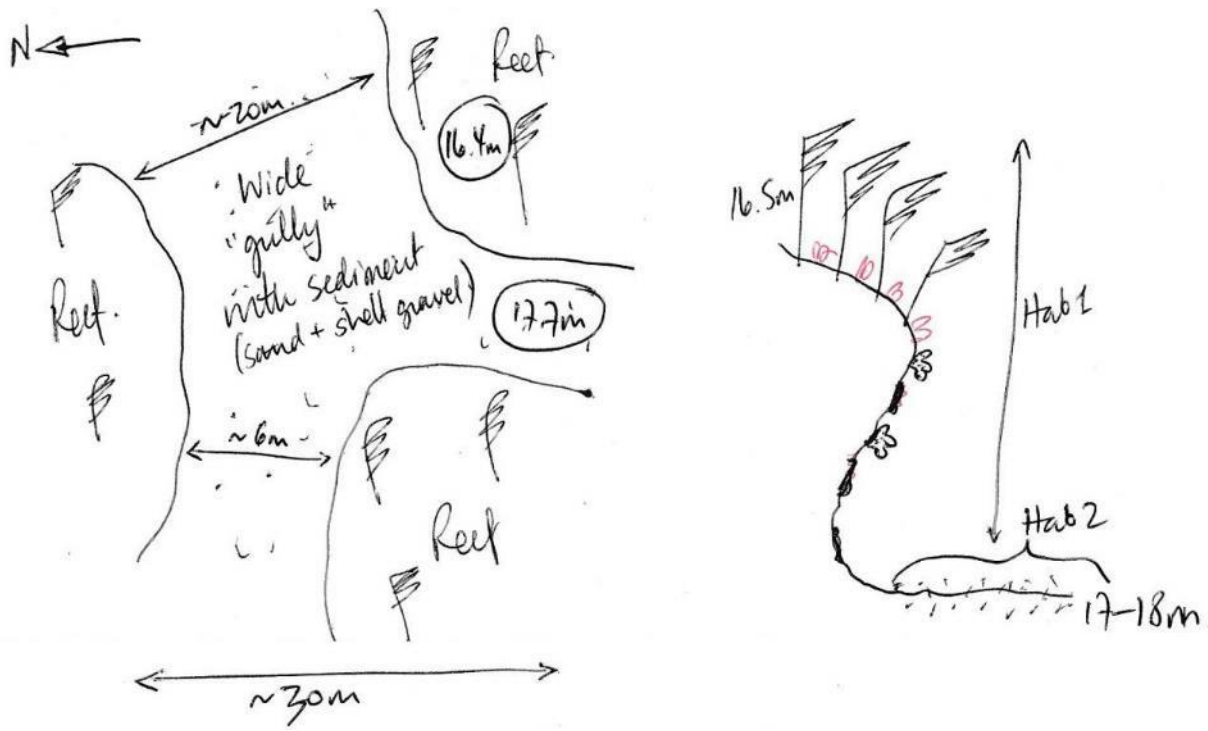 N
~20m
Reef
16.4m
"Wide
"gully"
with sediment
(sand + shell gravel)
17.7m
Reef.
~6m
Reef
~30m
16.5m
Hab1
Hab2
17-18m